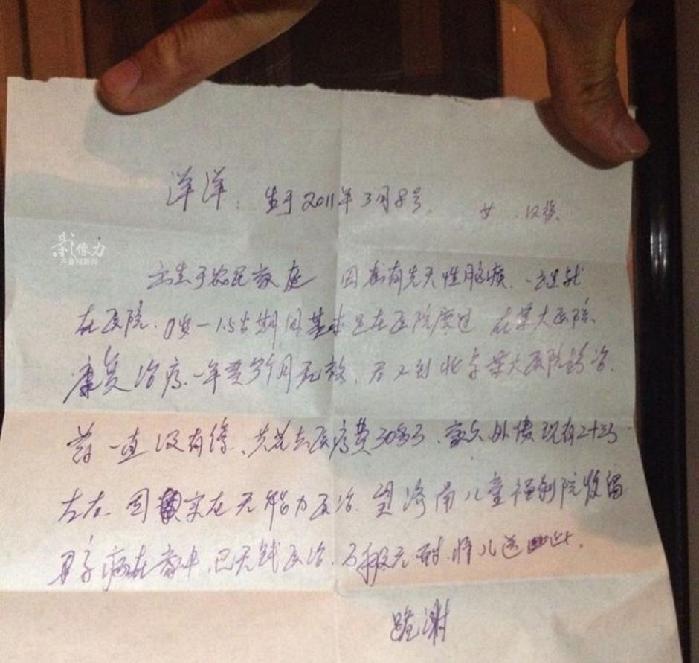 洋洋，生于2011年3月8号， 女 汉族
影像力
出生于农民家庭 因患有先天性脑疾，出生就
在医院，0岁—1.5岁期间基本是在医院度过 在某大医院
康复治疗一年零 个月无效，后又到北京某大医院诊治
药一直没有停，共花去医疗费30多万，家里外债现有2十2万
左右，因实在无能力医治，望济南儿童福利院收留
病在 中，已无钱医治，万般无耐，将儿送此，
跪谢